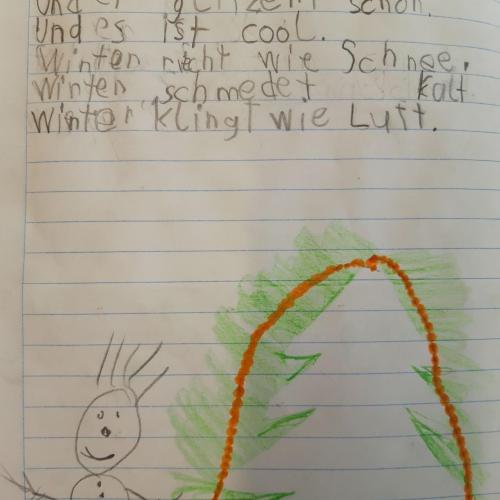 Und er glitzert schön.
Und es ist cool.
Winter richt wie Schnee.
Winter schmedet kalt
Winter klingt wie Luft.